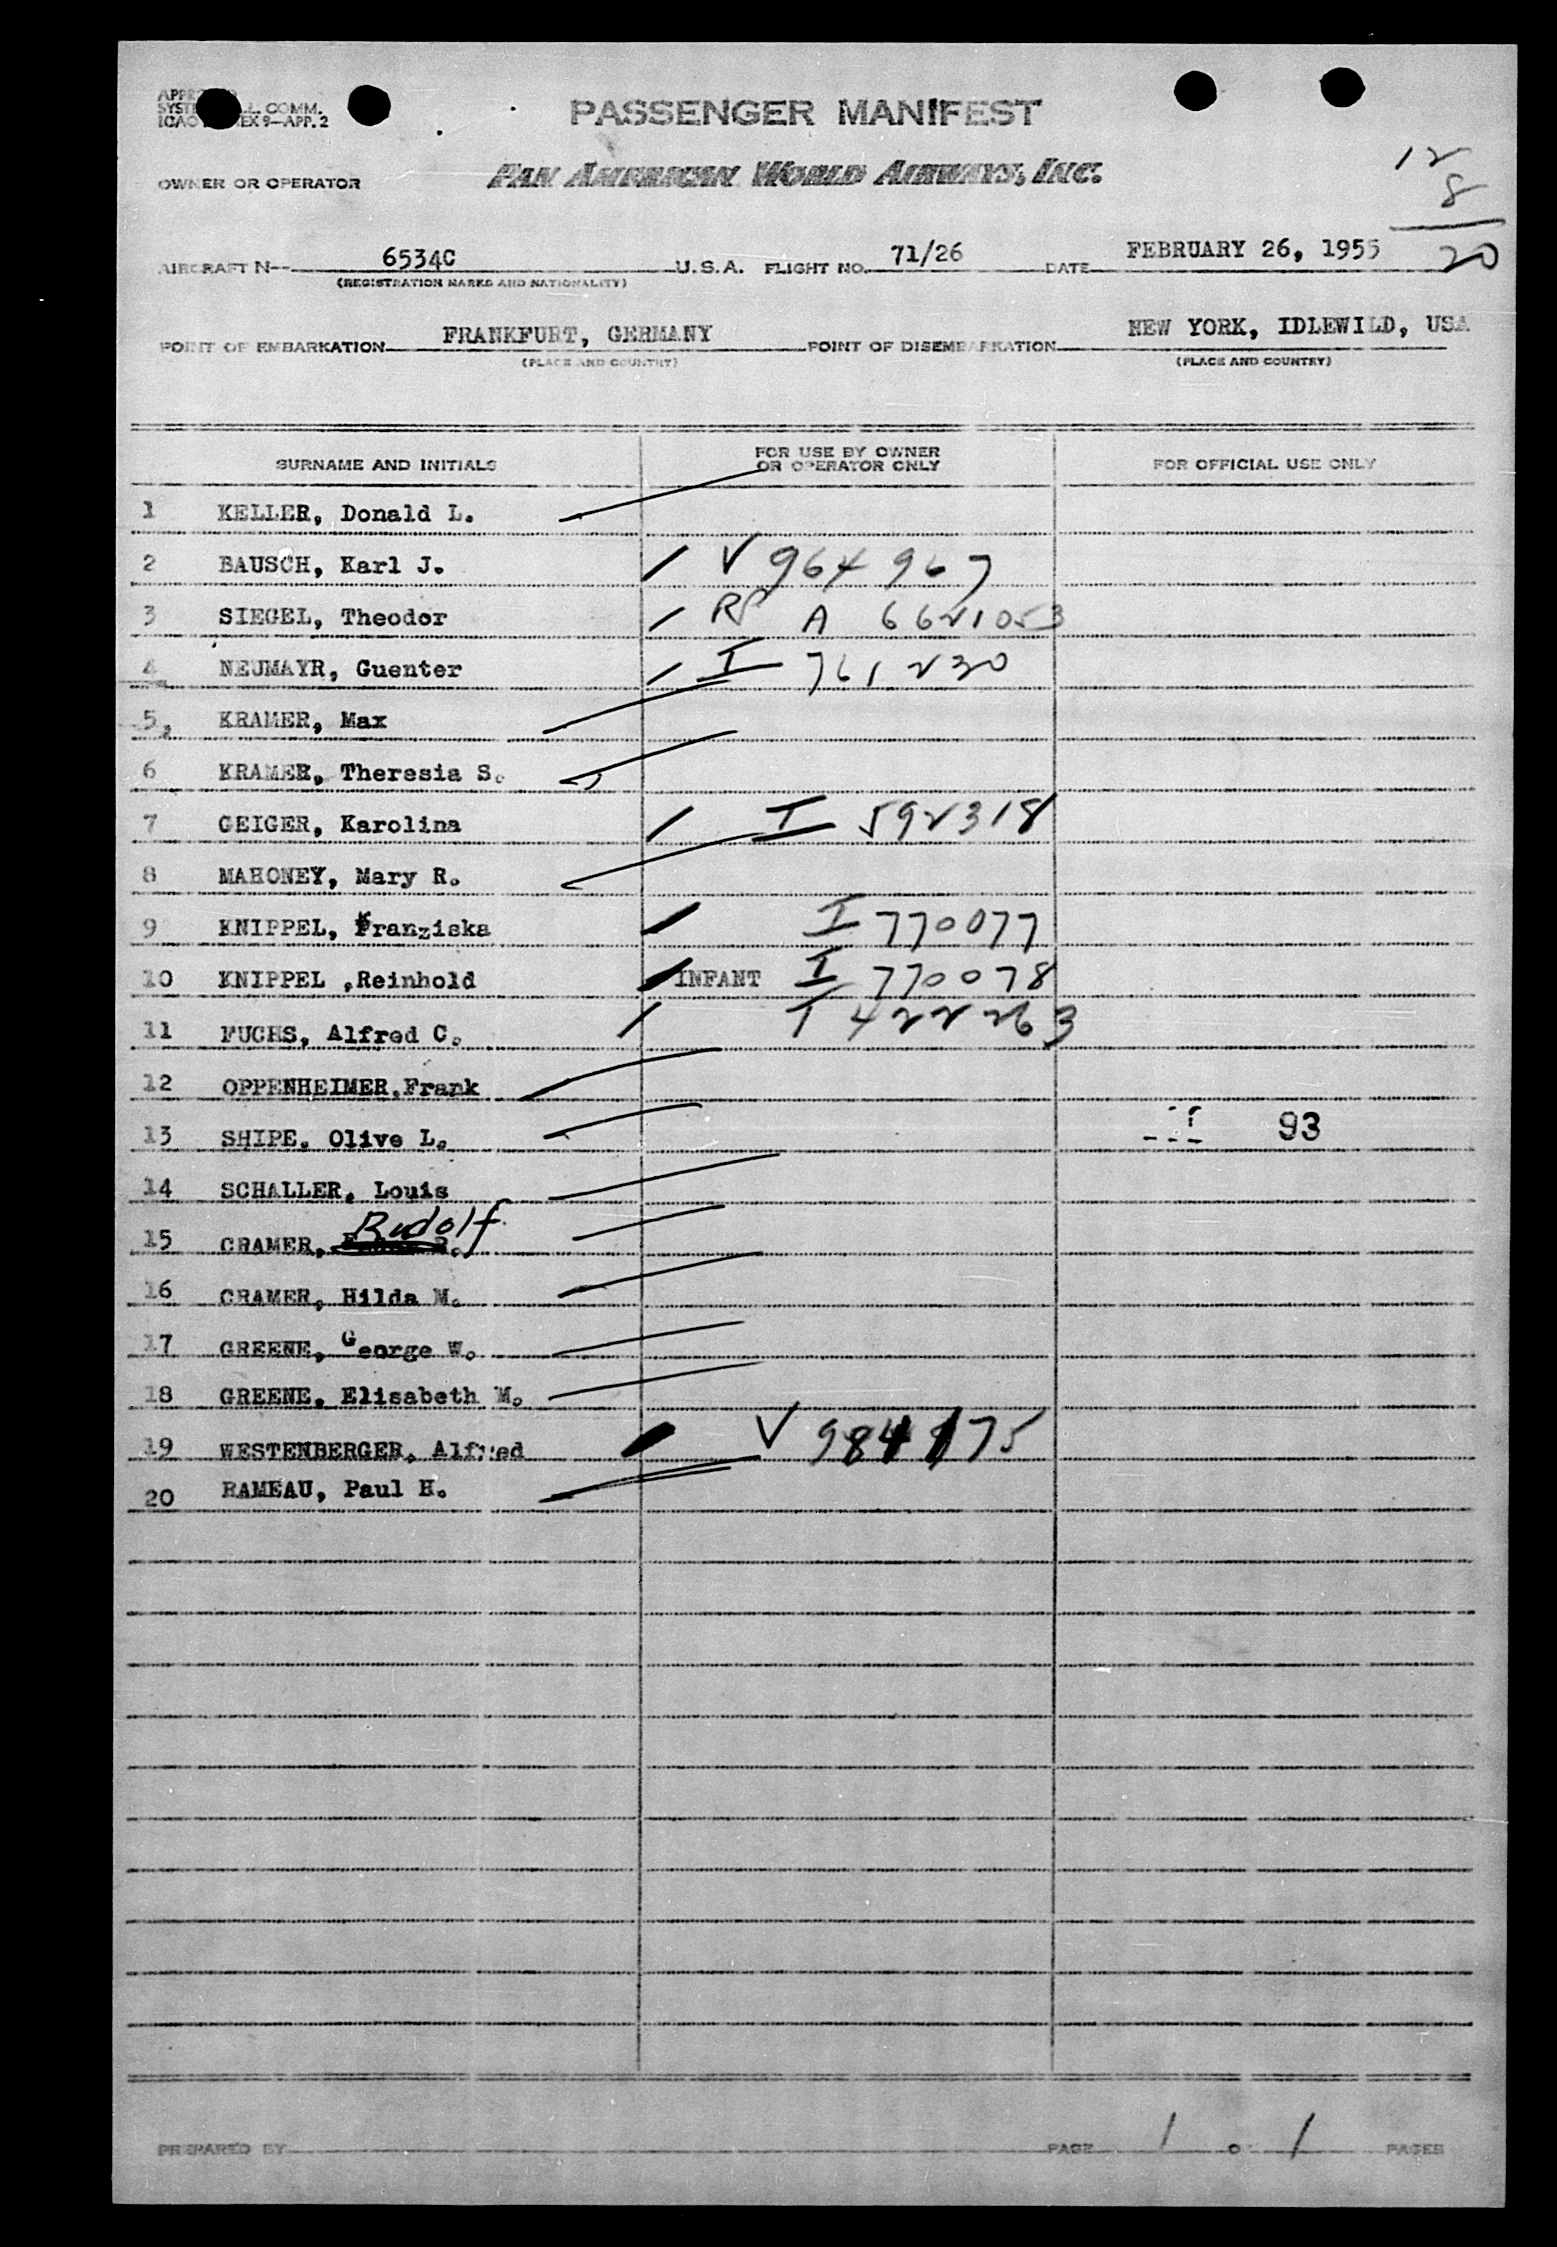 PASSENGER MANIFEST
COMM.
9—APP. 2
OWNER OR OPERATOR
PAN AMERICAN WORLD AIRWAYS, INC.
12
8
20
AIRCRAFT N-- 6534C U.S.A. FLIGHT NO. 71/26 DATE FEBRUARY 26, 1955
(REGISTRATION MARKS AND NATIONALITY)
POINT OF EMBARKATION FRANKFURT, GERMANY POINT OF DISEMBARKATION NEW YORK, IDLEWILD, USA
(PLACE AND COUNTRY) (PLACE AND COUNTRY)
SURNAME AND INITIALS FOR USE BY OWNER OR OPERATOR ONLY FOR OFFICIAL USE ONLY
1 KELLER, Donald L.
2 BAUSCH, Karl J. V 964 967
3 SIEGEL, Theodor RP A 6621053
4 NEUMAYR, Guenter I 761230
5, KRAMER, Max
6 KRAMER, Theresia S.
7 GEIGER, Karolina I 592318
8 MAHONEY, Mary R.
9 KNIPPEL, Franziska I 770077
10 KNIPPEL ,Reinhold INFANT I 770078
11 FUCHS, Alfred C. I 422263
12 OPPENHEIMER,Frank
13 SHIPE, Olive L. 93
14 SCHALLER, Louis
15 CRAMER, Rudolf
16 CRAMER, Hilda M.
17 GREENE, George W.
18 GREENE, Elisabeth M.
19 WESTENBERGER, Alfred V 984175
20 RAMEAU, Paul H.
PREPARED BY PAGE 1 OF 1 PAGES